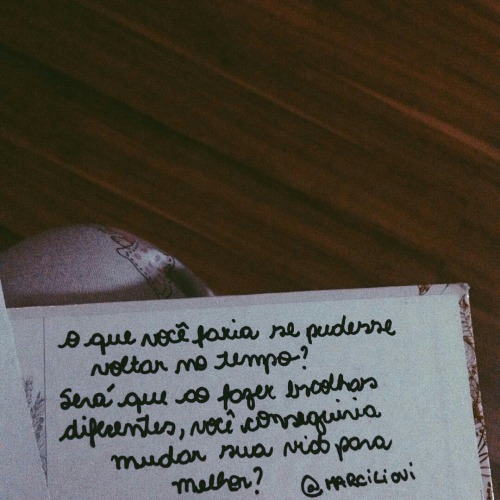 O que você faria se pudesse
voltar no tempo?
Será que ao fazer escolhas
diferentes, você conseguiria
mudar sua vida para
melhor? @MARCILIOVI